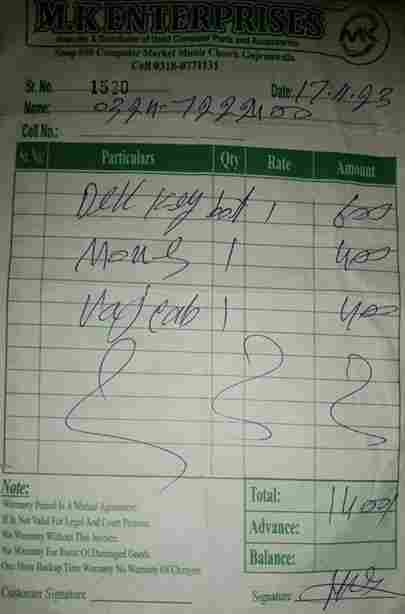 M.K ENTERPRISES
Importer & Distributor of Used Computer Parts and Accessories
Computer Market Munir Chowk Gujranwala
Cell 0318-0771131
MK
Sr. No. 1520 Date: 17.4.23
Name: 0324-7222400
Cell No.:
Sr.No. Particulars Qty Rate Amount
Dell Key bot 1 600
Mous 1 400
cab 1 400
Note:
Warranty Period Is A Mutual Agreement.
It Is Not Valid For Legal And Court Purpose.
No Warranty Without This Invoice.
No Warranty For Burnt Or Damaged Goods.
One Hour Backup Time Warranty No Warranty Of Charger.
Total: 1400/
Advance:
Balance:
Customer Signature Signature